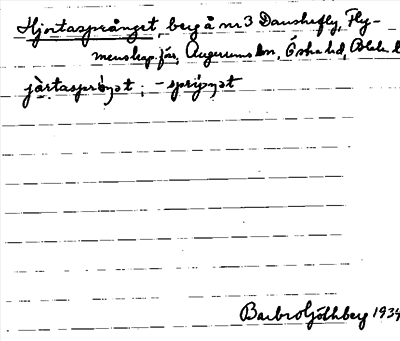 Hjortasprånget, berg å nr 3 Danskefly, Fly-
menskap. förs, Augerums sn, Östra hd, Blek. l
jàrtaspröŋət ; - spriŋət
Barbro Göthberg 1934